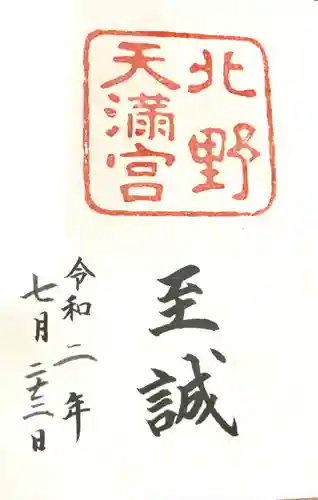 北野
天満宮
至誠
令和二年
七月二十二日